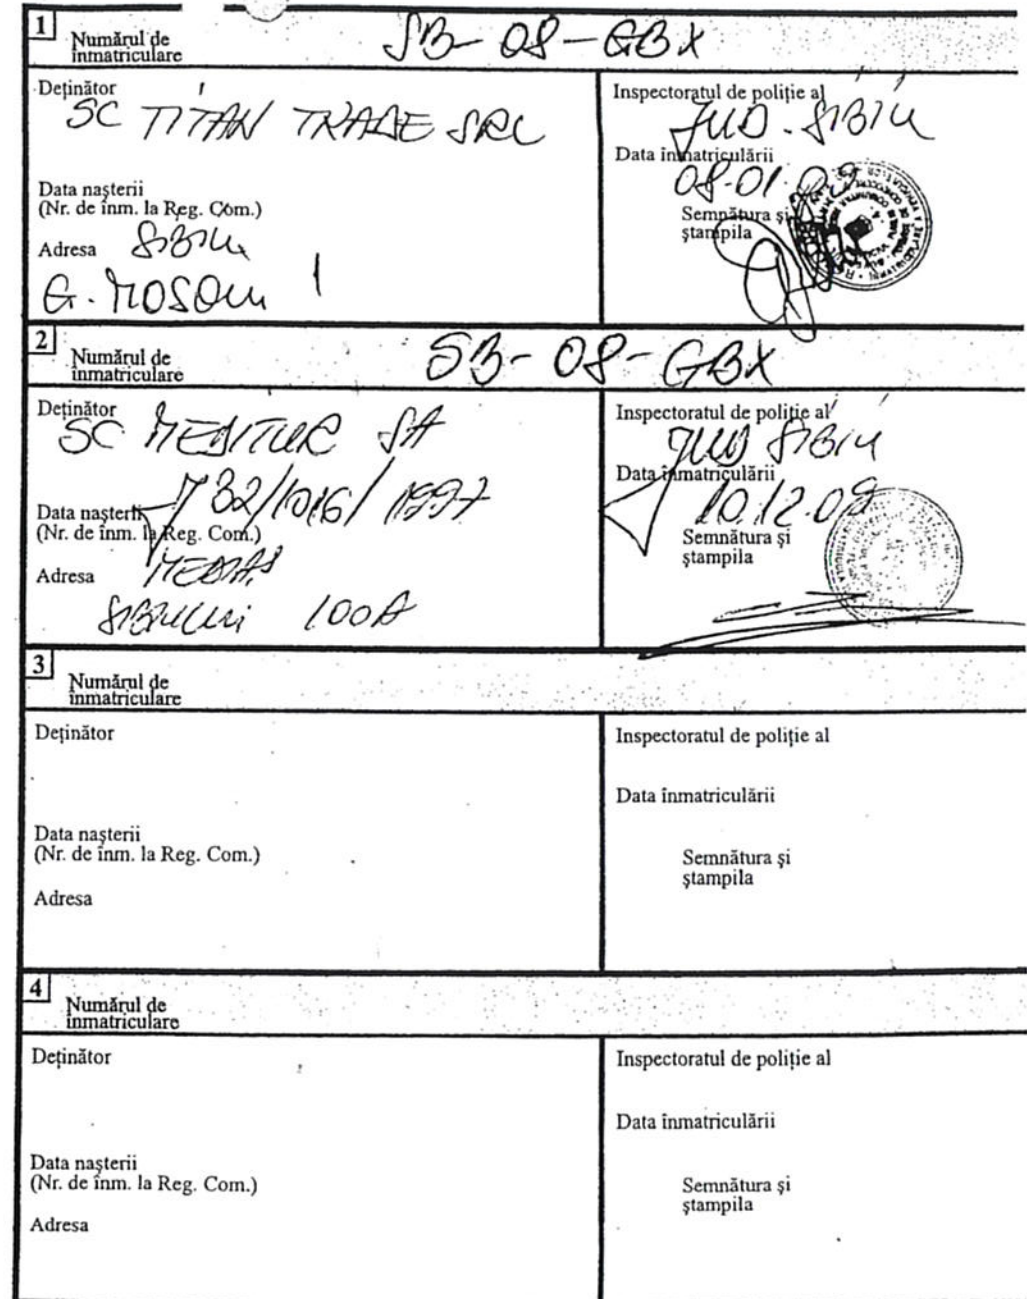 1
Numărul de
înmatriculare
SB-08-GBX
Deținător
SC TITAN TRADE SRL
Data nașterii
(Nr. de înm. la Reg. Com.)
Adresa SIBIU
G.
Inspectoratul de poliție al
JUD. SIBIU
Data înmatriculării
08.01.
Semnătura și
ștampila
2
Numărul de
înmatriculare
SB-08-GBX
Deținător
SC MEDITUR SA
Data nașterii 32/1016/1997
(Nr. de înm. la Reg. Com.)
Adresa MEDIAS
SIBIULUI 100A
Inspectoratul de poliție al
JUD SIBIU
Data înmatriculării
10.12.09
Semnătura și
ștampila
3
Numărul de
înmatriculare
Deținător
Data nașterii
(Nr. de înm. la Reg. Com.)
Adresa
Inspectoratul de poliție al
Data înmatriculării
Semnătura și
ștampila
4
Numărul de
înmatriculare
Deținător
Data nașterii
(Nr. de înm. la Reg. Com.)
Adresa
Inspectoratul de poliție al
Data înmatriculării
Semnătura și
ștampila